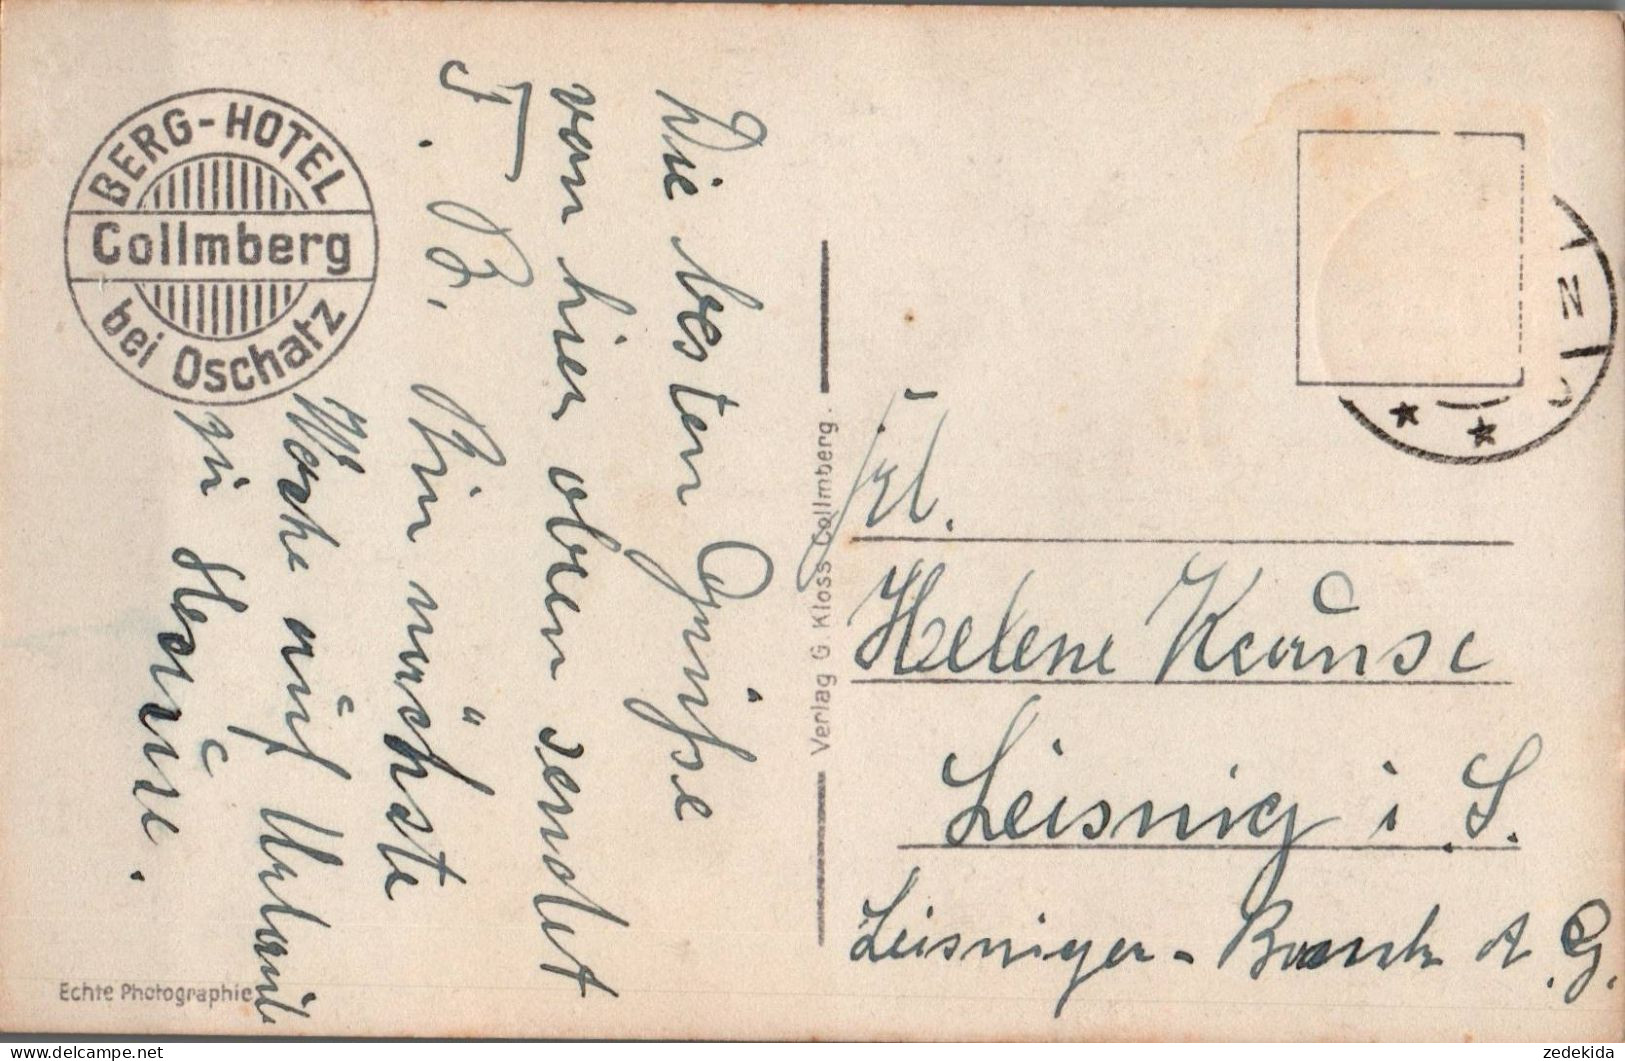 BERG-HOTEL
Collmberg
bei Oschatz
Die besten Grüsse
von hier oben sendet
F. B. Bin nächste
Woche auf Urlaub
zu Hause.
Echte Photographie
Verlag G. Kloss Collmberg.
Frl.
Helene Krause
Leisnig i. S.
Leisniger-Bank A. G.
zedekida